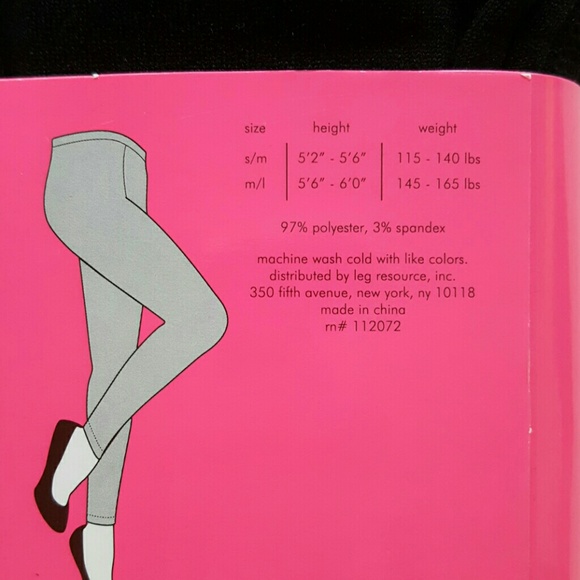 size height weight
s/m 5'2" - 5'6" 115 - 140 lbs
m/l 5'6" - 6'0" 145 - 165 lbs
97% polyester, 3% spandex
machine wash cold with like colors.
distributed by leg resource, inc.
350 fifth avenue, new york, ny 10118
made in china
rn# 112072